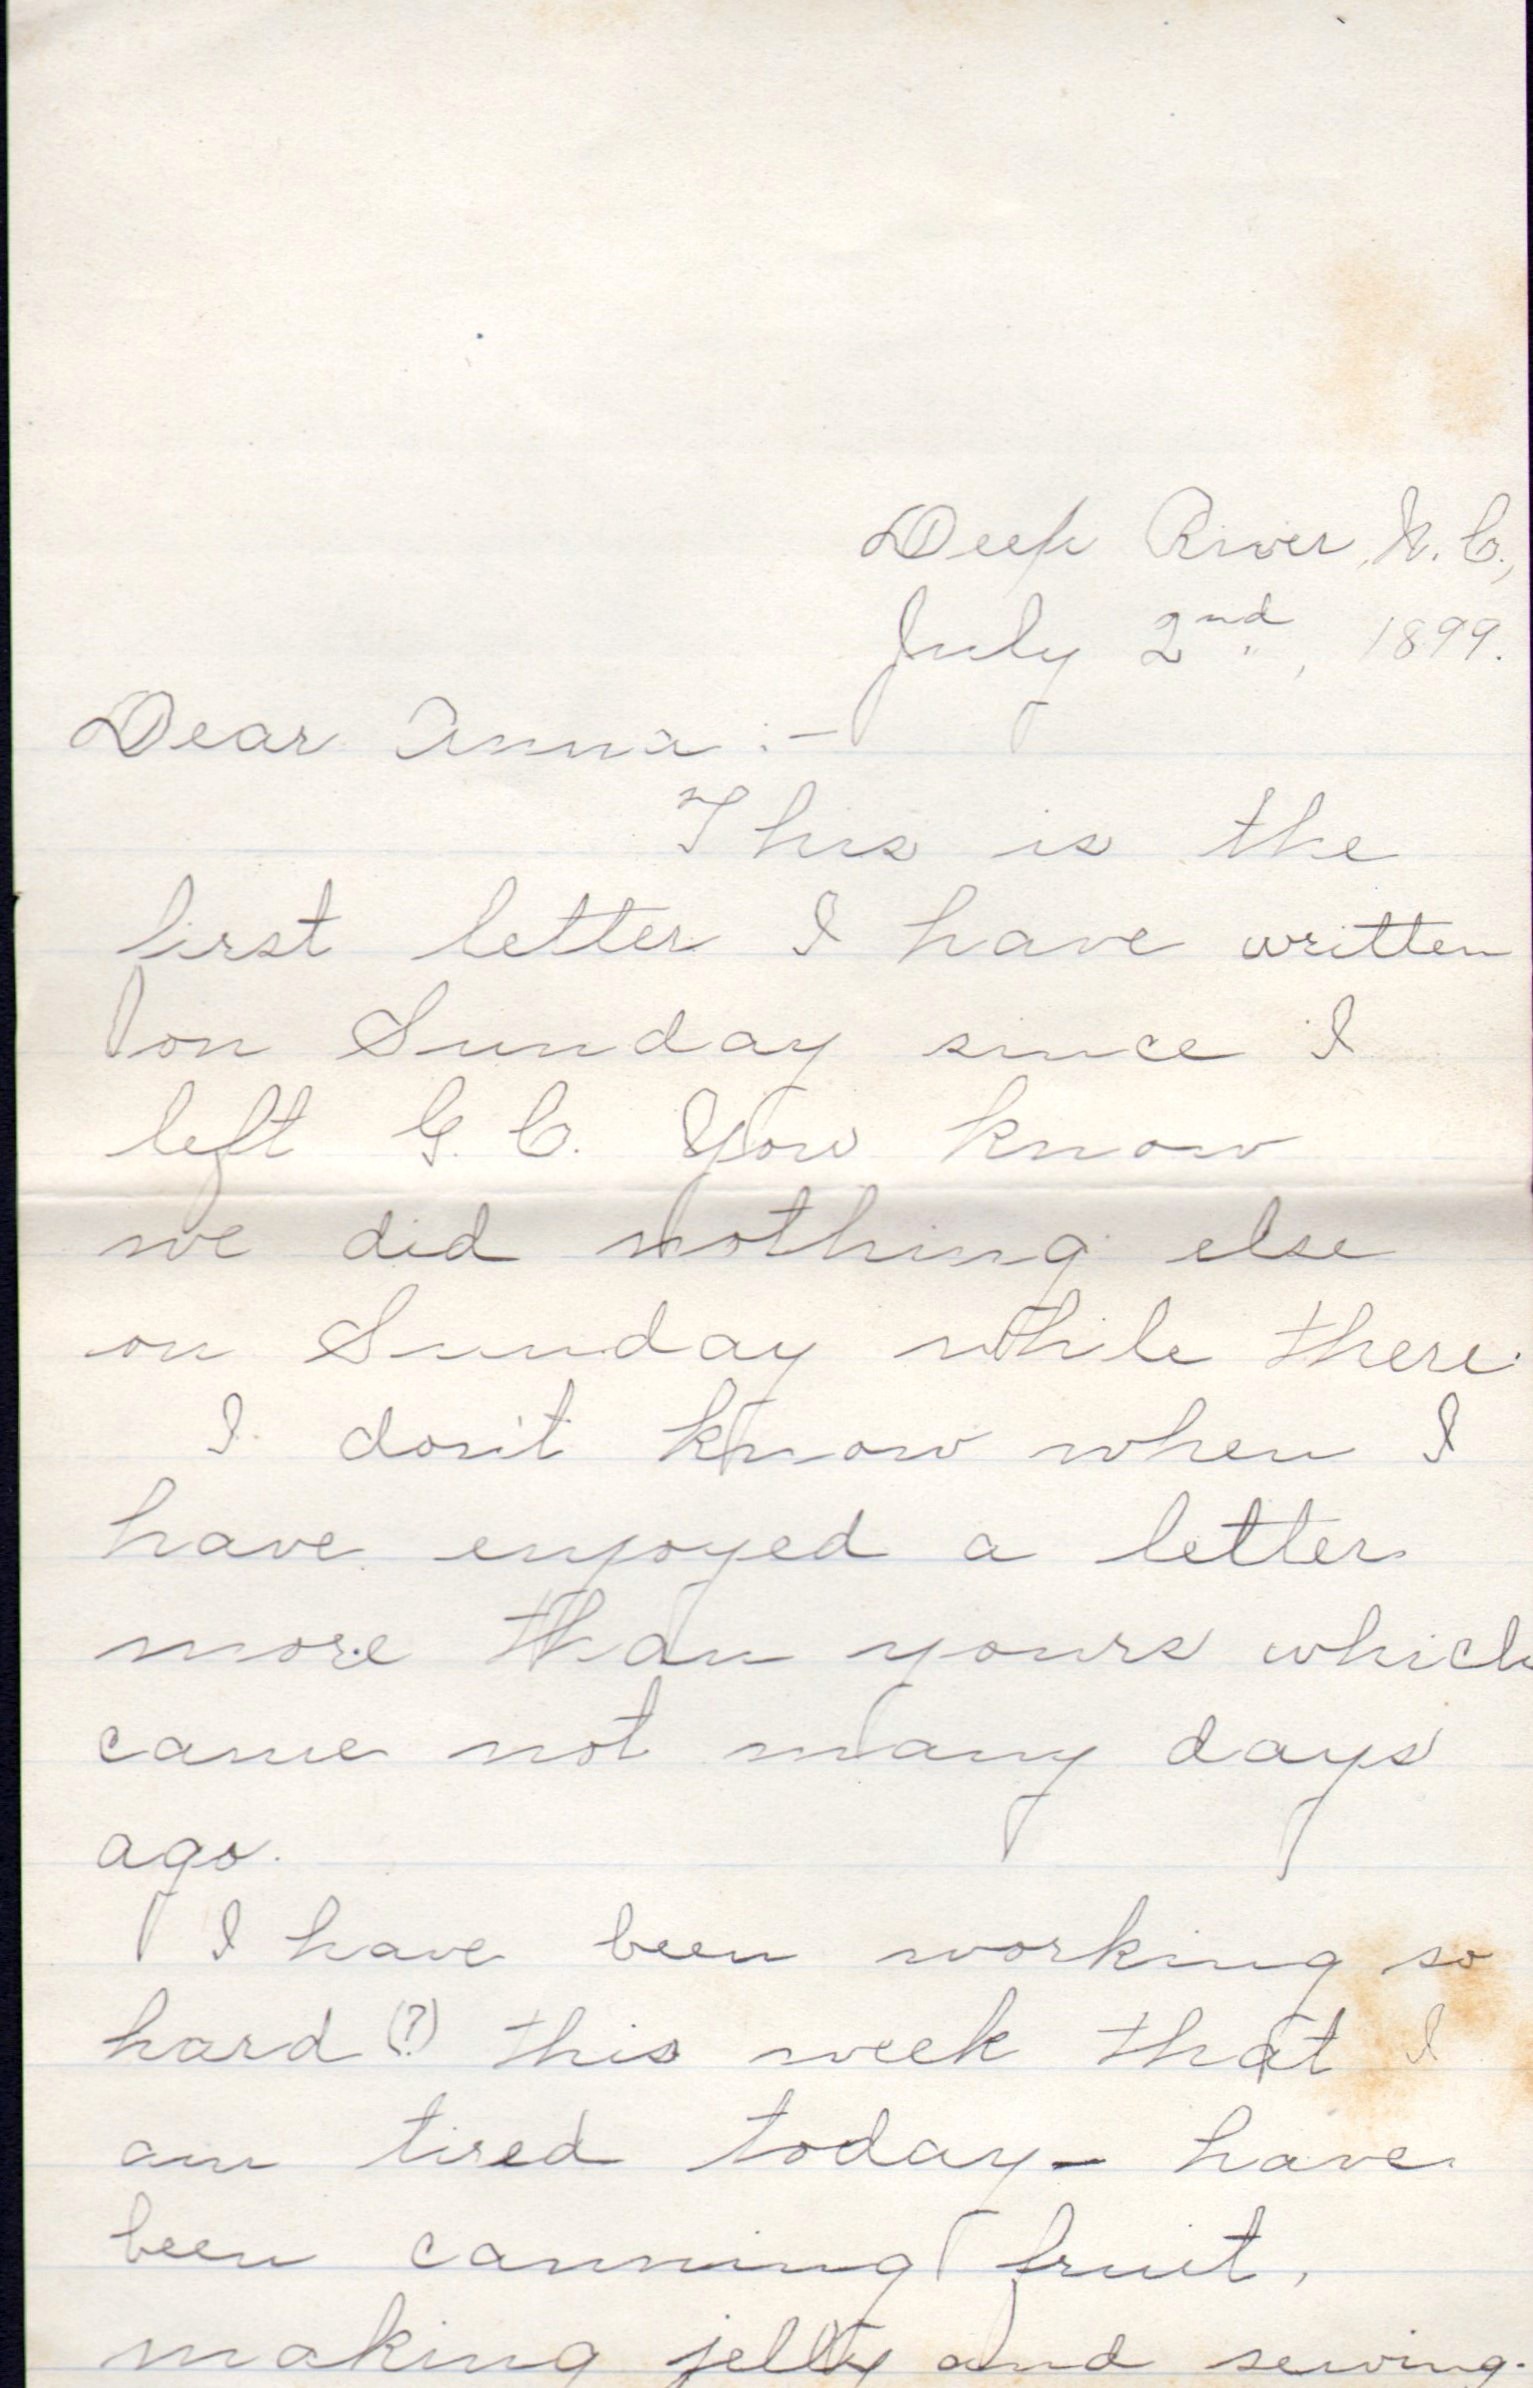 Deep River, N. C.,
July 2nd., 1899.
Dear Anna:-
This is the
first letter I have written
on Sunday since I
left G. C. You know
we did nothing else
on Sunday while there.
I don't know when I
have enjoyed a letter
more than yours which
came not many days
ago.
I have been working so
hard (?) this week that I
am tired today- have
been canning fruit,
making jelly and sewing.